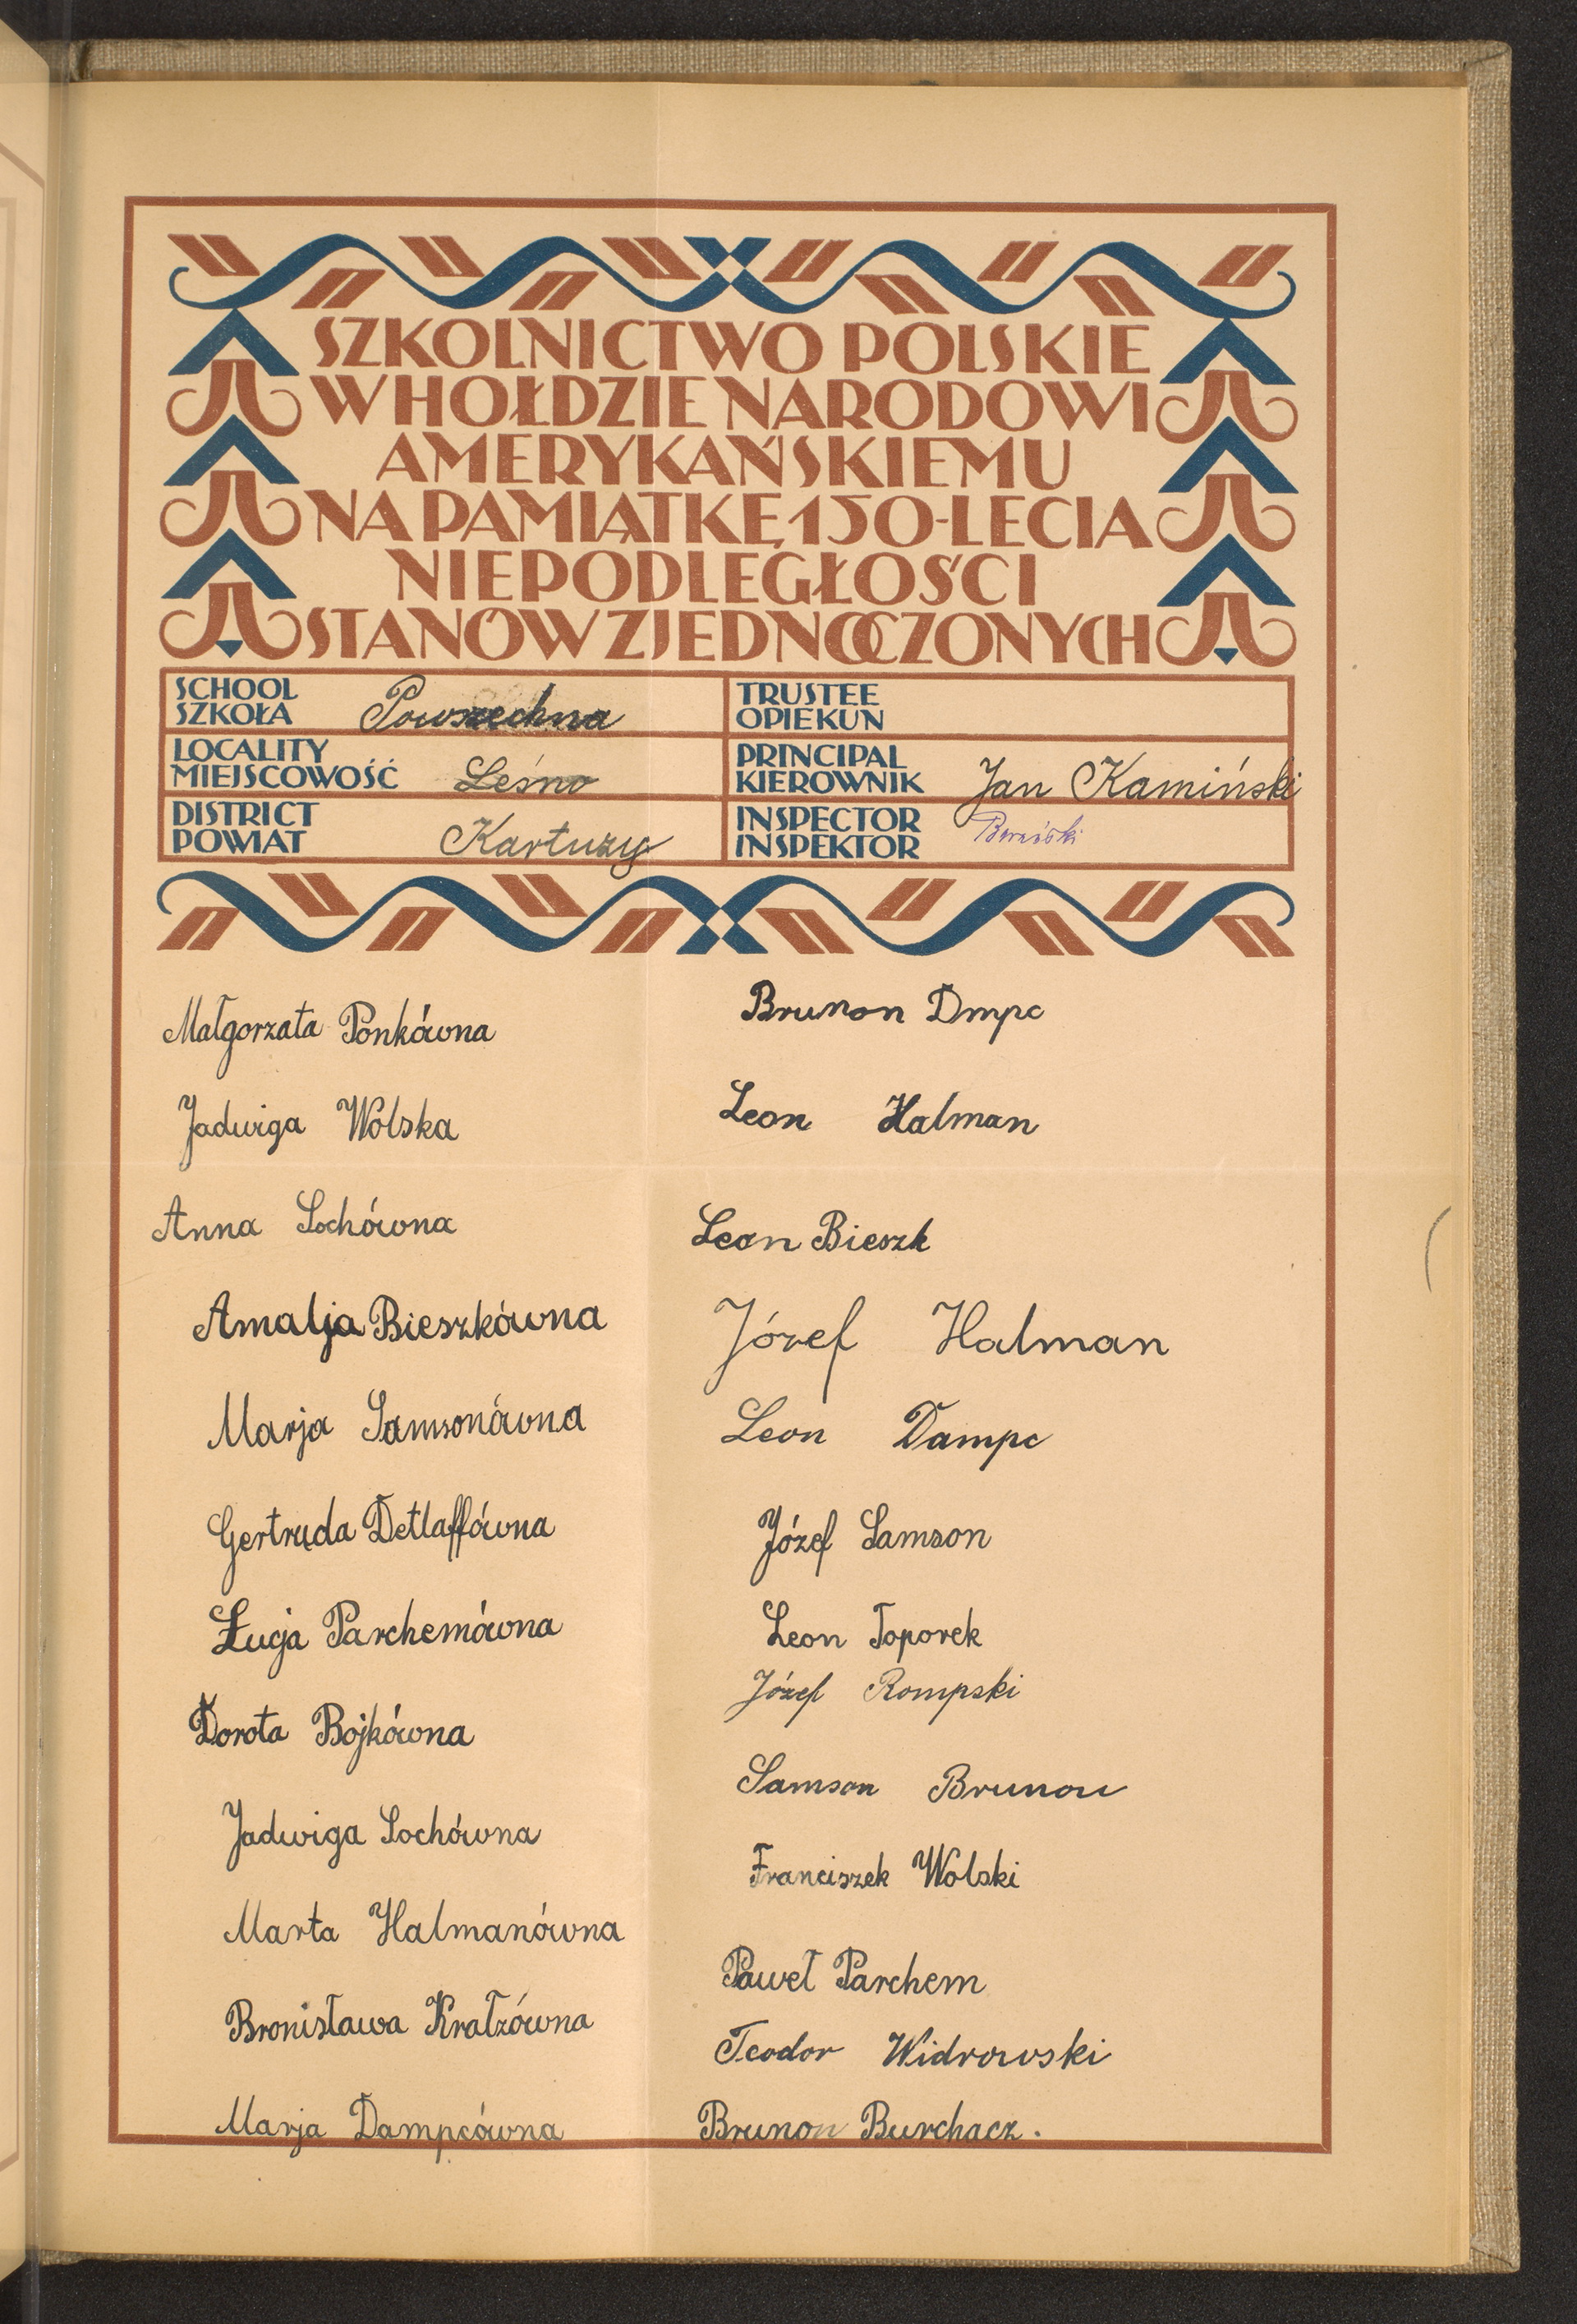 SZKOLNICTWO POLSKIE
W HOŁDZIE NARODOWI
AMERYKAŃSKIEMU
NA PAMIĄTKĘ 150-LECIA
NIEPODLEGŁOŚCI
STANÓW ZJEDNOCZONYCH
SCHOOL
SZKOŁA Powszechna
LOCALITY
MIEJSCOWOŚĆ Leśno
DISTRICT
POWIAT Kartuzy
TRUSTEE
OPIEKUN
PRINCIPAL
KIEROWNIK Jan Kamiński
INSPECTOR
INSPEKTOR
Małgorzata Ponkówna
Jadwiga Wolska
Anna Sochówna
Amalja Bieszkówna
Marja Samsonówna
Gertruda Detlaffówna
Łucja Parchemówna
Dorota Bojkówna
Jadwiga Sochówna
Marta Halmanówna
Bronisława Kratzówna
Marja Dampcówna
Brunon Dmpc
Leon Halman
Leon Bieszk
Józef Halman
Leon Dampc
Józef Samson
Leon Toporek
Józef Rompski
Samson Brunon
Franciszek Wolski
Paweł Parchem
Teodor Widrowski
Brunon Burchacz.